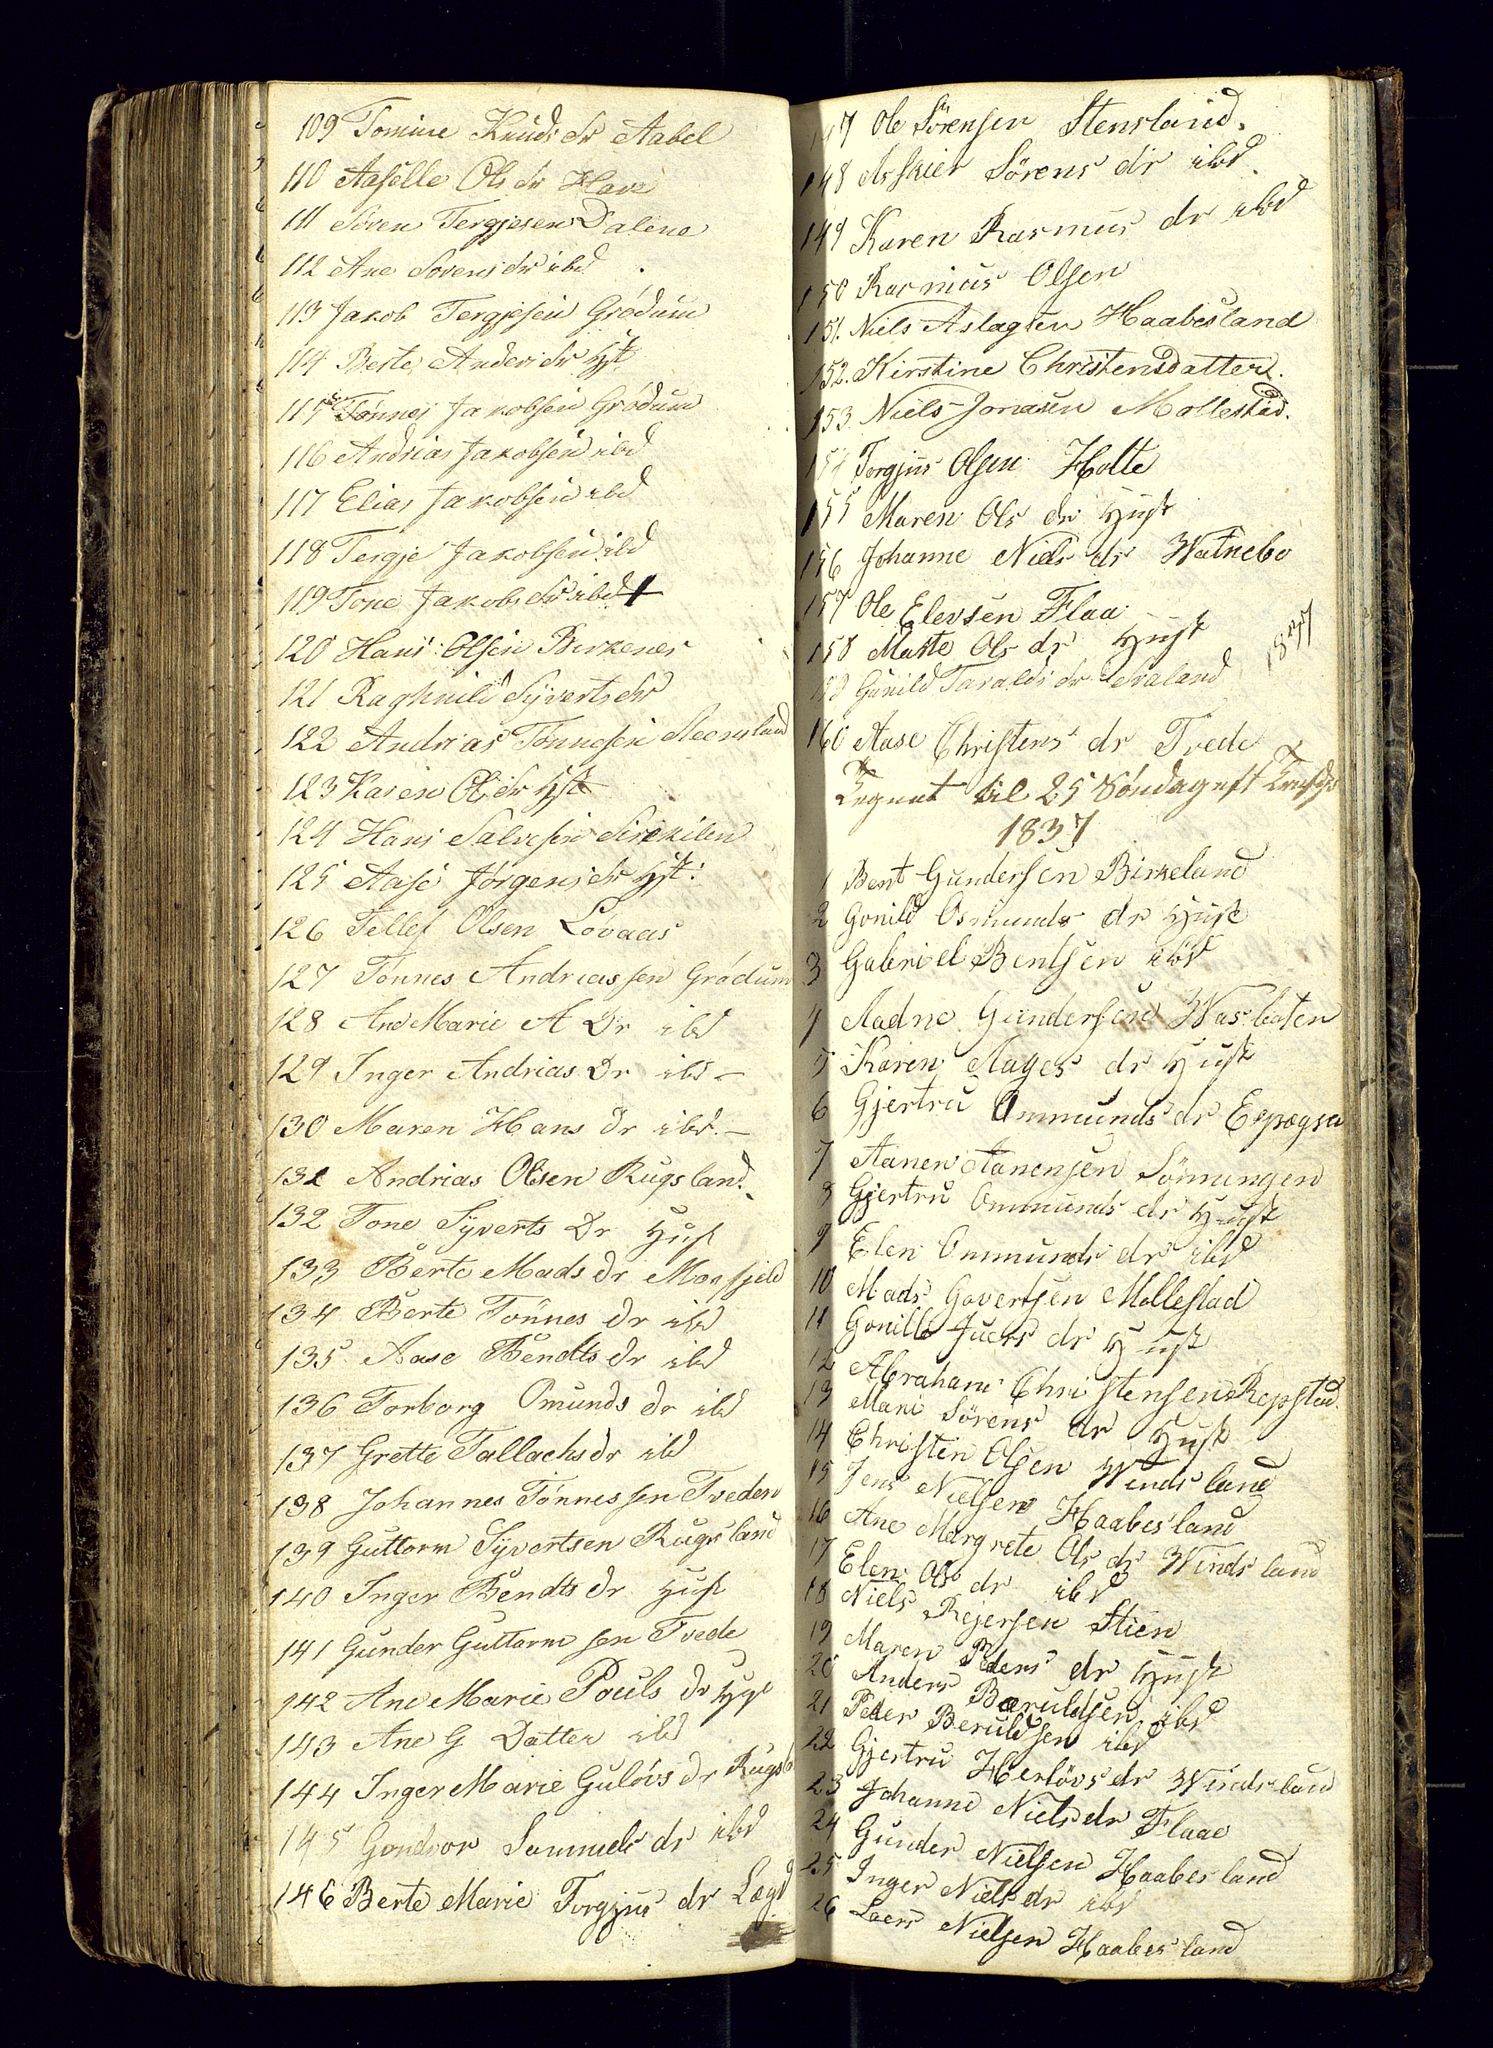 109 Tomine Knuds dr Aabel
110 Aaselle Ols dr Have
111 Sören Tergjesen Dalene
112 Ane Sörens dr ibd
113 Jakob Tergjesen Grödum
114 Berte Anders dr Hst
115 Tönnes Jakobsen Grödum
116 Andrias Jakobsen ibd
117 Elias Jakobsen ibd
118 Tergje Jakobsen ibd
119 Tone Jakobs dr ibd
120 Hans Olsen Birkenes
121 Raghnild Syverts dr
122 Andrias Tönnesen
123 Karen Ols dr Hst
124 Hans Salvesen Sirekilen
125 Aase Jörgens dr Hst:
126 Tellef Olsen Lövaas
127 Tönnes Andriassen Grödum
128 Ane Marie A Dr ibd
129 Inger Andrias Dr ibd –
130 Maren Hans dr ibd –
131 Andrias Olsen Rugsland
132 Tone Syverts Dr Hust
133 Berte Mads dr Mosfjeld
134 Berte Tönnes dr ibd
135 Aase Bendts dr ibd
136 Torborg Omunds dr ibd
137 Grette Tallachs dr ibd
138 Johannes Tönnessen Tveden
139 Guttorm Syvertsen Rugsland
140 Inger Bendts dr Hust
141 Gunder Guttormsen Tvede
142 Ane Marie Pouls dr Hust
143 Ane G Datter ibd
144 Inger Marie Gulövs dr Rugsl
145 Gondvor Samuels dr ibd
146 Berte Marie Torgjus dr Lægd
147 Ole Sörensen Stensland.
148 Asskier Sörens dr ibd.
149 Karen Rasmus dr ibd
150 Rasmus Olsen
151. Niels Aslagsen Haabesland
152. Kirstine Christensdatter.
153. Niels Jonasen Mollestad.
154 Torgjus Olsen Holte
155 Maren Ols dr Hust
156 Johanne Niels dr Watnebo
157 Ole Elevsen Flaa
158 Marte Ols dr Hust
159 Gunild Taralds dr Svaland 1837
160 Aase Christens dr Tvede
Tegnet til 25 Söndag eft
1837
1 Bent Gundersen Birkeland
2 Gonild Osmunds dr Hust
3 Gabriel Bentsen ibd
4 Aadne Gundersen Wasboten
5 Karen Aages dr Hust
6 Gjertru Ommunds dr Eppogsa
7 Aanen Aanensen Sönningen
8 Gjertru Ommunds dr Hust
9 Elen Ommunds dr ibd
10 Mads Govertsen Mollestad
11 Gonille Juers dr Hust
12 Abraham Christensen Repstad
13 Mari Sörens dr Hust
14 Christen Olsen Windsland
15 Jens Nielsen Haabesland
16 Ane Margrete Ols dr Windsland
17 Elen Ols dr ibd
18 Niels Rejersen Stien
19 Maren Peders dr Hust
20 Anders Beruldsen ibd
21 Peder Beruldsen ibd
22 Gjertru Herlövs dr Windsland
23 Johanne Niels dr Flaae
24 Gunder Nielsen Haabesland
25 Inger Niels dr ibd
26 Laers Nielsen Haabesland